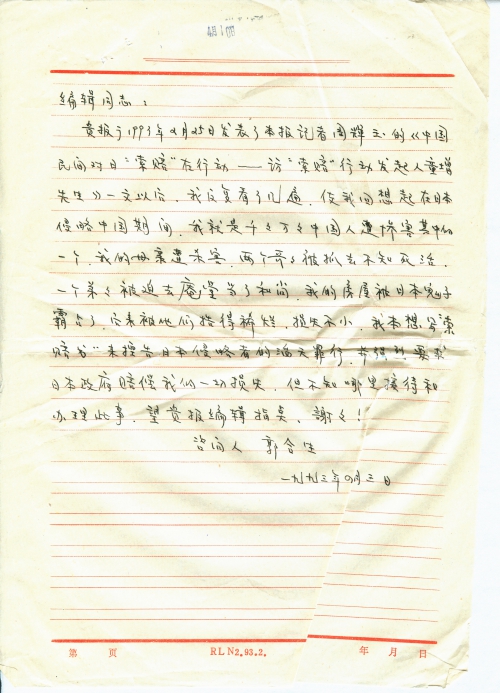 编辑同志：
贵报于1993年2月25日发表了本报记者周辉立的《中国
民间对日“索赔”在行动——访“索赔”行动发起人童增
先生》一文以后，我反复看了几遍，使我回想起在日本
侵略中国期间，我就是千千万万中国人遭惨害其中的
一个，我的母亲遭杀害，两个哥哥被抓去不知死活，
一个弟弟被迫去庵堂当了和尚，我的房屋被日本鬼子
霸占了，后来被他们搞得稀烂，损失不小，我本想写“索
赔书”来控告日本侵略者的滔天罪行，并强烈要求
日本政府赔偿我们一切损失，但不知哪里接待和
办理此事，望贵报编辑指点，謝々！
咨询人 郭合生
一九九三年四月三日
第 页 RLN2.93.2. 年 月 日